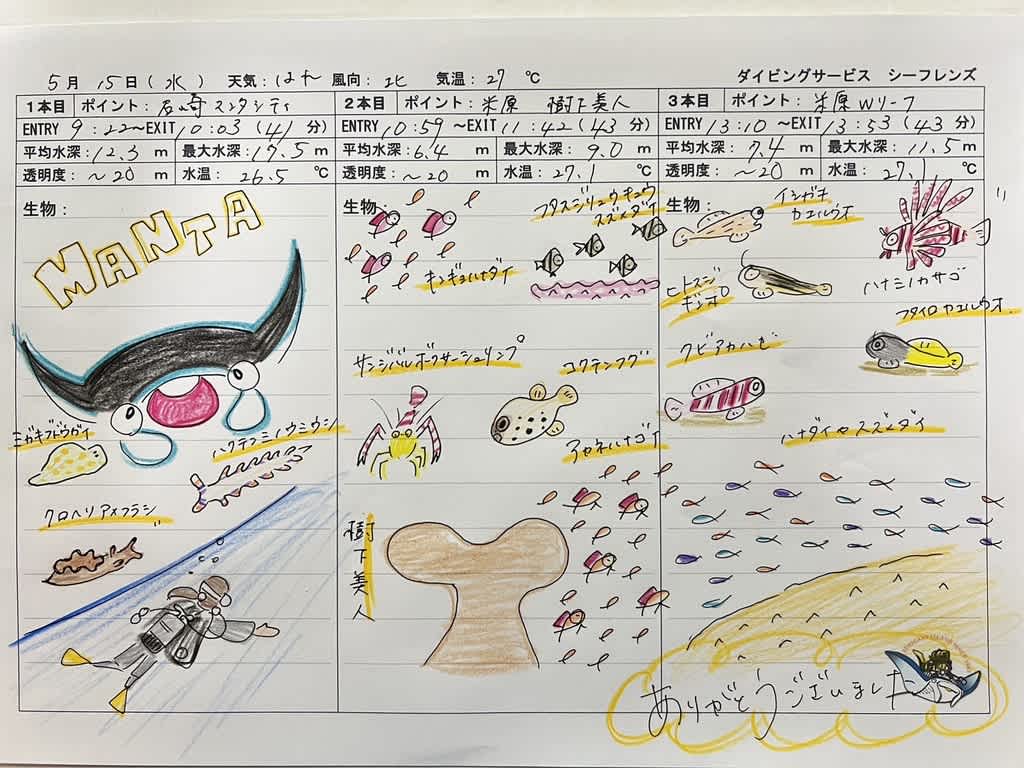 5月 15日(水) 天気:はれ 風向:北 気温:27 ℃
ダイビングサービス シーフレンズ
1本目 ポイント:石崎マンタシティ
ENTRY 9:22~EXIT 10:03(41分)
平均水深:12.3 m 最大水深:17.5 m
透明度:~20 m 水温:26.5 ℃
生物:
MANTA
ミガキブドウガイ
ハクテンミノウミウシ
クロヘリアメフラシ
2本目 ポイント:米原 樹下美人
ENTRY 10:59 ~EXIT 11:42(43分)
平均水深:6.4 m 最大水深:9.0 m
透明度:~20 m 水温:27.1 ℃
生物:
フタスジリュウキュウ
スズメダイ
キンギョハナダイ
サンジバルボクサーシュリンプ
コクテンフグ
アカネハナゴイ
樹下美人
3本目 ポイント:米原Wリーフ
ENTRY 13:10 ~EXIT 13:53(43分)
平均水深:7.4 m 最大水深:11.5 m
透明度:~20 m 水温:27.1 ℃
生物:
イシガキ
カエルウオ
ハナミノカサゴ
ヒトスジ
ギンポ
フタイロカエルウオ
クビアカハゼ
ハナダイロスズメダイ
ありがとうございました